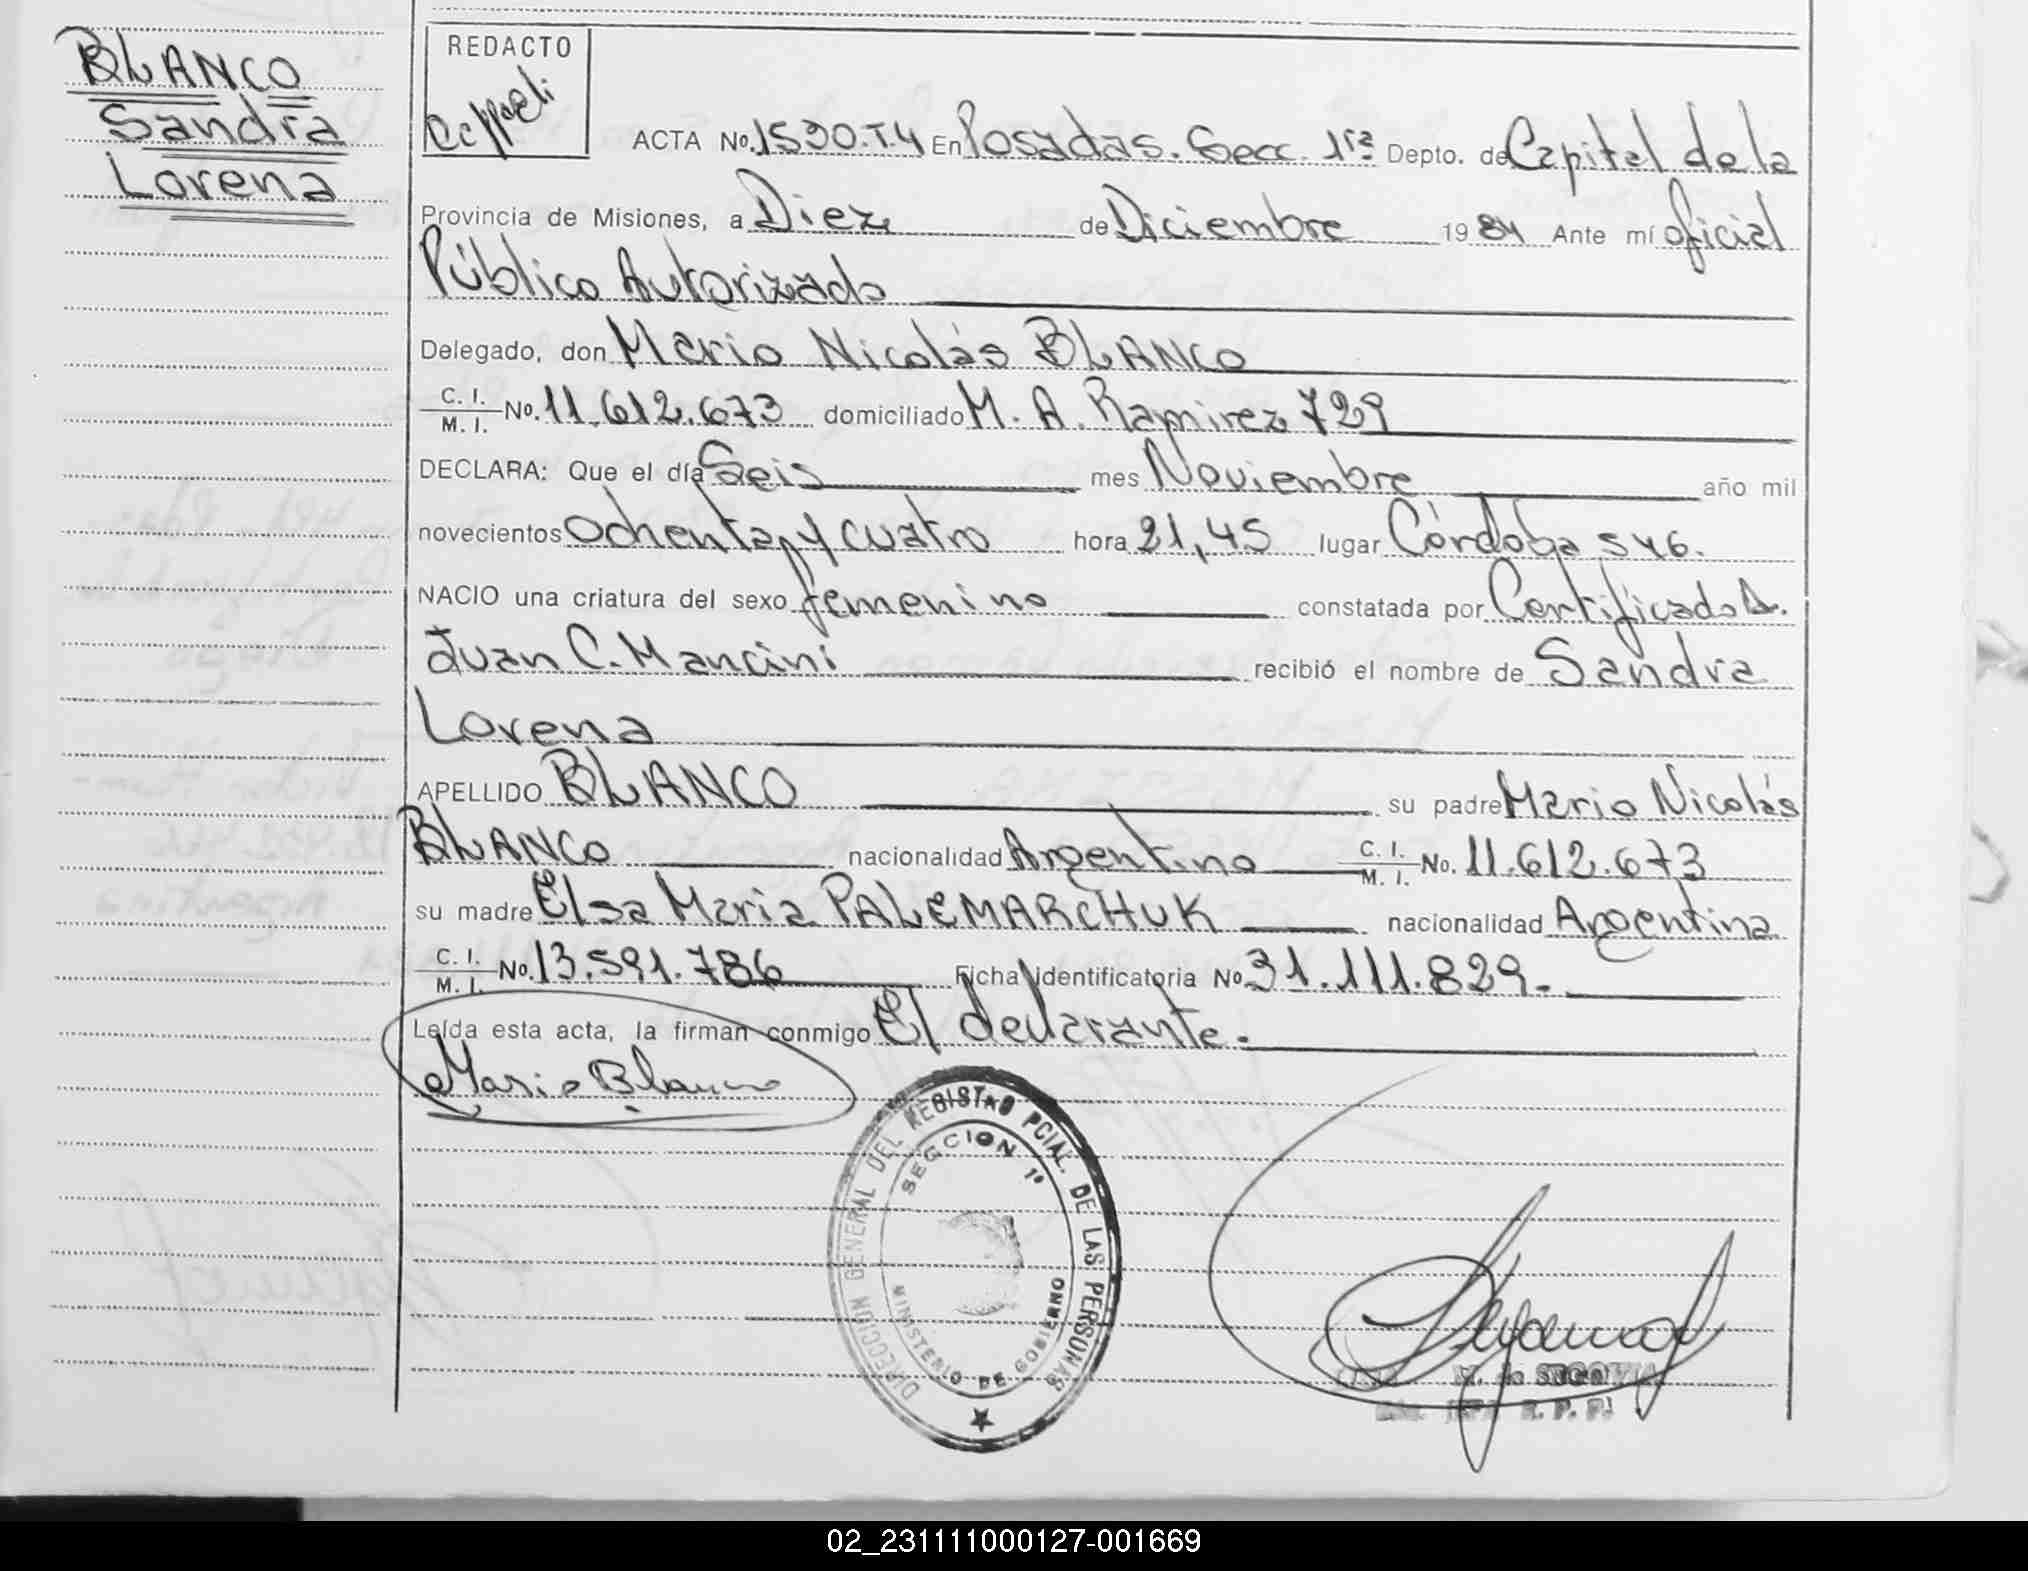 BLANCO
Sandra
Lorena
REDACTO
ACTA No. 1530.T.4 En Posadas. Secc. 1ra Depto. de Capital de la
Provincia de Misiones, a Diez de Diciembre 1984 Ante mí oficial
Público Autorizado
Delegado, don Mario Nicolás BLANCO
C. I. / M. I. No. 11.612.673 domiciliado M. A. Ramirez 729
DECLARA: Que el día Seis mes Noviembre año mil
novecientos Ochenta y cuatro hora 21,45 lugar Córdoba 546.
NACIO una criatura del sexo femenino constatada por Certificado D.
Juan C. Mancini recibió el nombre de Sandra
Lorena
APELLIDO BLANCO su padre Mario Nicolás
BLANCO nacionalidad Argentino C. I. / M. I. No. 11.612.673
su madre Elsa Maria PALEMARCHUK nacionalidad Argentina
C. I. / M. I. No. 13.591.786 Ficha identificatoria No 31.111.829.
Leída esta acta, la firman conmigo El declarante.
Mario Blanco
DIRECCION GENERAL DEL REGISTRO PCIAL. DE LAS PERSONAS
SECCION 1ª
MINISTERIO DE GOBIERNO
M. de SEGOVIA
02_231111000127-001669